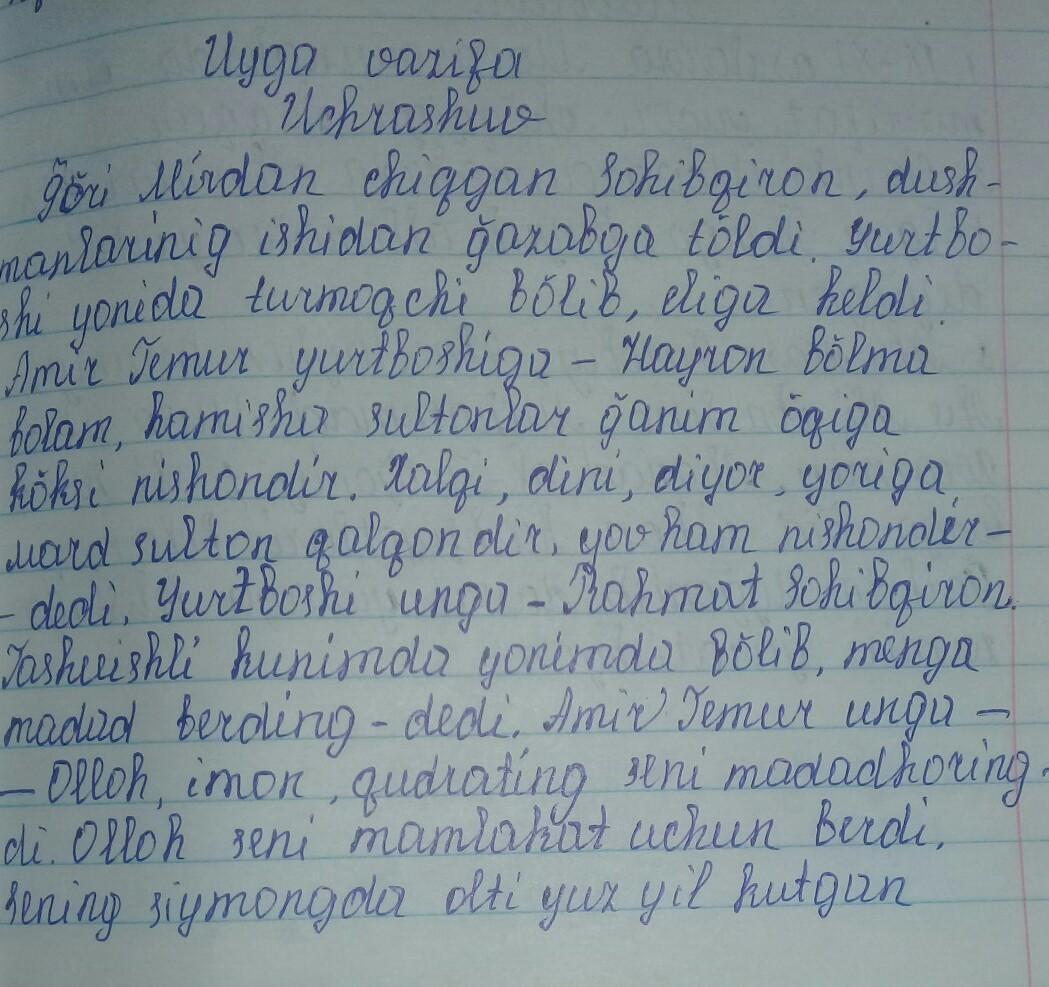 Uyga vazifa
Uchrashuv
Gŏri Mirdan chiqqan Sohibqiron, dush-
manlarinig ishidan ğazabga tŏldi. Yurtbo-
shi yonida turmoqchi bŏlib, eliga keldi.
Amir Temur yurtboshiga - Hayron bŏlma
bolam, hamisha sultonlar ğanim ŏqiga
kŏksi nishondir. Xalqi, dini, diyor, yoriga
mard sulton qalqondir, yov ham nishondir-
- dedi. Yurtboshi unga - Rahmat Sohibqiron.
Tashvishli kunimda yonimda bŏlib, menga
madad berding - dedi. Amir Temur unga -
- Olloh, imon, qudrating seni madadkoring-
di. Olloh seni mamlakat uchun berdi,
sening siymongda olti yuz yil kutgan